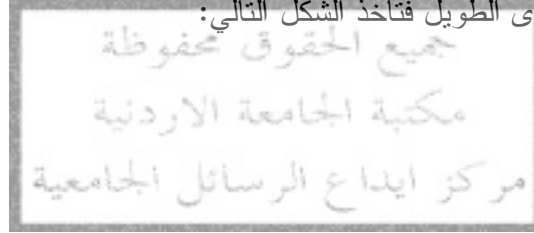 ى الطويل فتأخذ الشكل التالي:
جميع الحقوق محفوظة
مكتبة الجامعة الاردنية
مركز ايداع الرسائل الجامعية